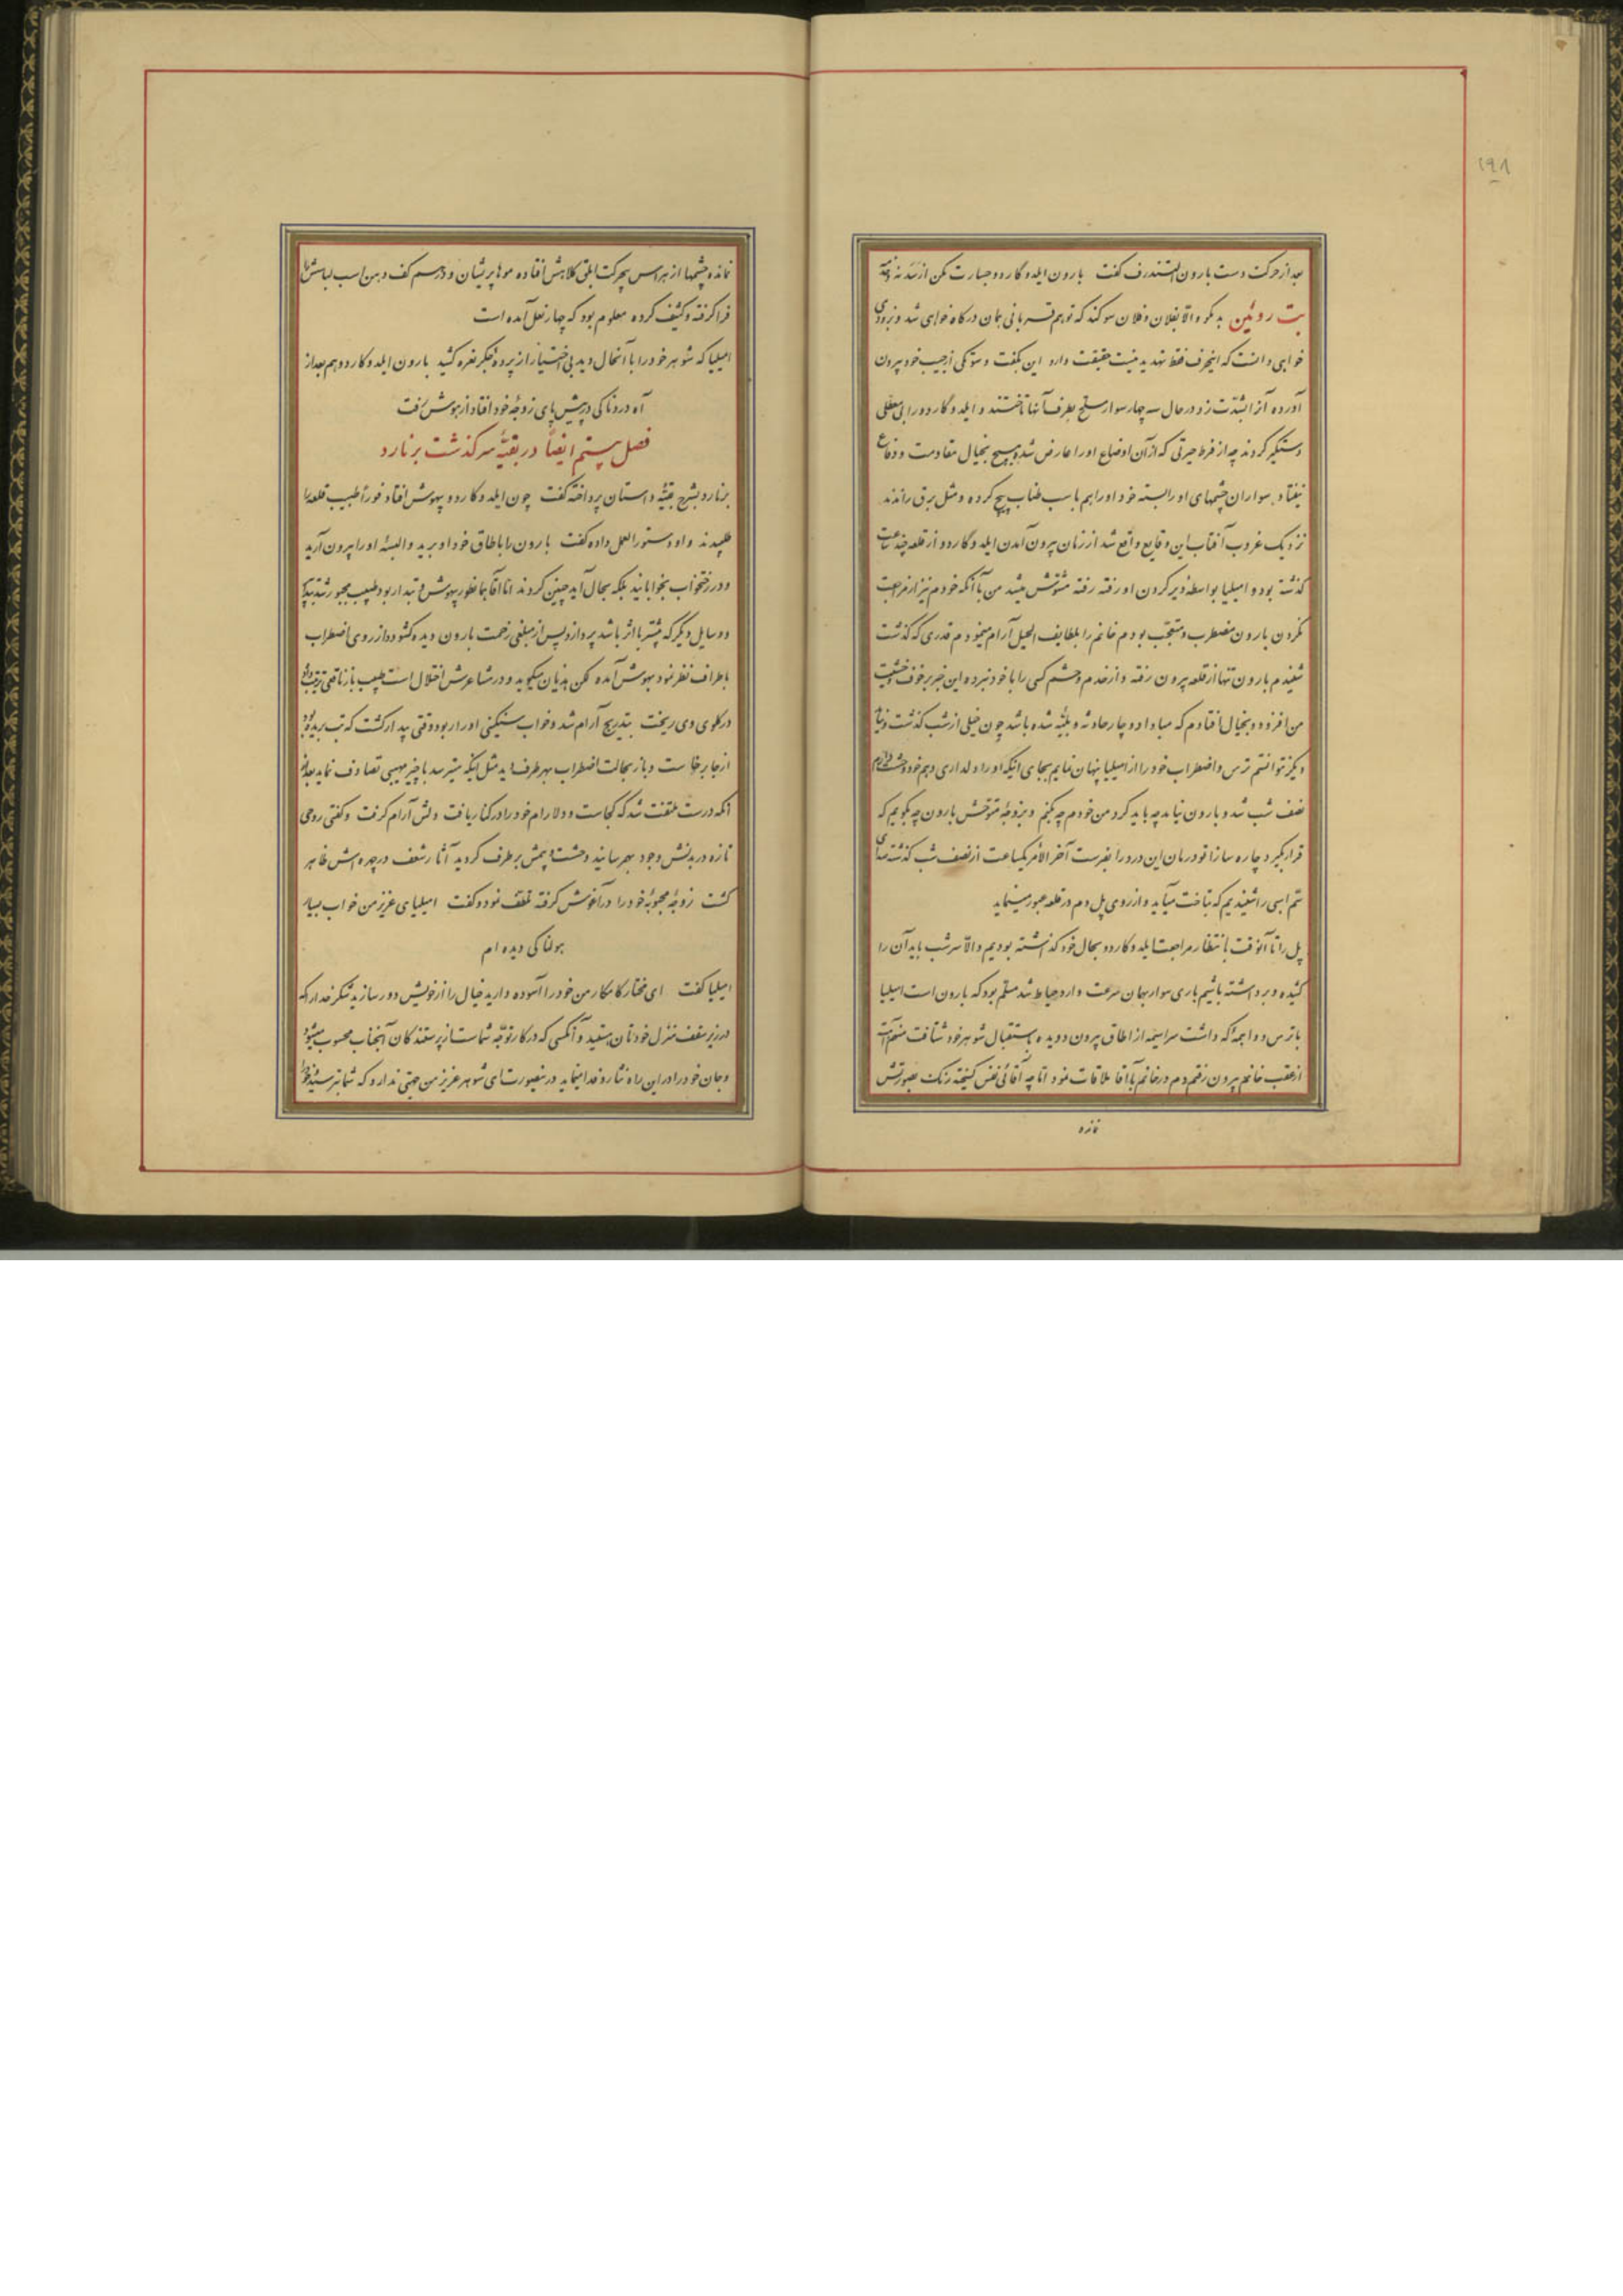 ۱۹۸
بعد از حرکت دست بارون استندرف گفت بارون ایلدوگاردو جسارت مکن از
بت روئین بد مگو والا بفلان و فلان سوگند که تو هم قربانی همان درگاه خواهی شد و بزودی
خواهی دانست که اینحرف فقط تهدید نیست حقیقت دارد این بگفت و سوتکی از جیب خود بیرون
آورده آنرا بشدت زد در حال سه چهار سوار مسلح بطرف آنها تاختند و ایلدوگاردو را بی معطلی
دستگیر کردند چه از فرط حیرتی که از آن اوضاع او را عارض شد هیچ بخیال مقاومت و دفاع
نیفتاد سواران چشمهای او را بسته خود او را هم با اسب طناب پیچ کرده و مثل برق راندند
نزدیک غروب آفتاب این وقایع واقع شد از زمان بیرون آمدن ایلدوگاردو از قلعه چند ساعت
گذشته بود و امیلیا بواسطه دیر کردن او رفته رفته مشوش میشد من با آنکه خودم نیز از مراجعت
نکردن بارون مضطرب و متعجب بودم خانم را بلطایف الحیل آرام مینمودم قدری که گذشت
شنیدم بارون تنها از قلعه بیرون رفته و از خدم و حشم کسی را با خود نبرده و این خبر بر خوف و خشیت
من افزوده و بخیال افتادم که مبادا دوچار حادثه و بلیه شده باشد چون خیلی از شب گذشت و نیامد
دیگر نتوانستم ترس و اضطراب خود را از امیلیا پنهان نمایم بجای اینکه او را دلداری دهم خود وحشت داشتم
نصف شب شد و بارون نیامد چه باید کرد من خودم چه بکنم و بزوجه متوحش بارون چه بگویم که
قرار بگیرد چاره سازا تو درمان این درد را بفرست آخر الامر یکساعت از نصف شب گذشته صدای
سم اسبی را شنیدیم که بتاخت میآید و از روی پل دم در قلعه عبور مینماید
پل را تا آنوقت بانتظار مراجعت ایلدوگاردو بحال خود گذاشته بودیم والا سر شب باید آن را
کشیده و برداشته باشیم باری سوار بهمان سرعت وارد حیاط شد مسلم بود که بارون است امیلیا
با ترس و واهمه که داشت سراسیمه از اطاق بیرون دویده باستقبال شوهر خود شتافت منهم
از عقب خانم بیرون رفتم دم در خانم با آقا ملاقات نمود اما چه آقائی نفس گسیخته رنگ بصورتش
نمانده
نمانده چشمها از هراس بیحرکت کلاهش افتاده موها پریشان و درهم کف دهن اسب لباسش را
فرا گرفته و کثیف کرده معلوم بود که چهار نعل آمده است
امیلیا که شوهر خود را با آنحال دید بی اختیار از پرده جگر نعره کشید بارون ایلدوگاردو هم بعد از
آه دردناکی در پیش پای زوجه خود افتاد از هوش رفت
فصل بیستم ایضاً در بقیه سرگذشت برنارد
برنارد بشرح بقیه داستان پرداخته گفت چون ایلدوگاردو بیهوش افتاد فوراً طبیب قلعه را
طلبیدند و او دستور العمل داده گفت بارون را باطاق خود او برید و البسه او را بیرون آرید
و در رختخواب بخوابانید بلکه بحال آید چنین کردند اما آقا همانطور بیهوش و تبدار بود طبیب مجبور شد
وسایل دیگر که بیشتر با اثر باشد پردازد پس از مبلغی زحمت بارون دیده گشود و از روی اضطراب
باطراف نظر نمود بهوش آمده لکن هذیان میگوید و در مشاعرش اختلال است طبیب باز
در گلوی وی ریخت بتدریج آرام شد و خواب سنگینی او را ربود وقتی بیدار گشت که تب بریده بود
از جا برخاست و باز بحالت اضطراب بهر طرف دید مثل اینکه میترسد با چیز مهیبی تصادف نماید بعد از
آنکه درست ملتفت شد که کجاست و دلارام خود را در کنار یافت دلش آرام گرفت و گفتی روحی
تازه در بدنش وجود بهم رسانید وحشت و بیمش برطرف گردید آثار شعف در چهره اش ظاهر
گشت زوجه محبوبه خود را در آغوش گرفته تلطف نمود و گفت امیلیای عزیز من خواب بسیار
هولناکی دیده ام
امیلیا گفت ای مختار کامکار من خود را آسوده دارید خیال را از خویش دور سازید شکر خدا را که
در زیر سقف منزل خودتان هستید و آنکسی که در کار توجه شماست از پرستندگان آنجناب محسوب میشود
و جان خود را در این راه نثار و فدا مینماید در اینصورت ای شوهر عزیز من جهتی ندارد که شما بترسید